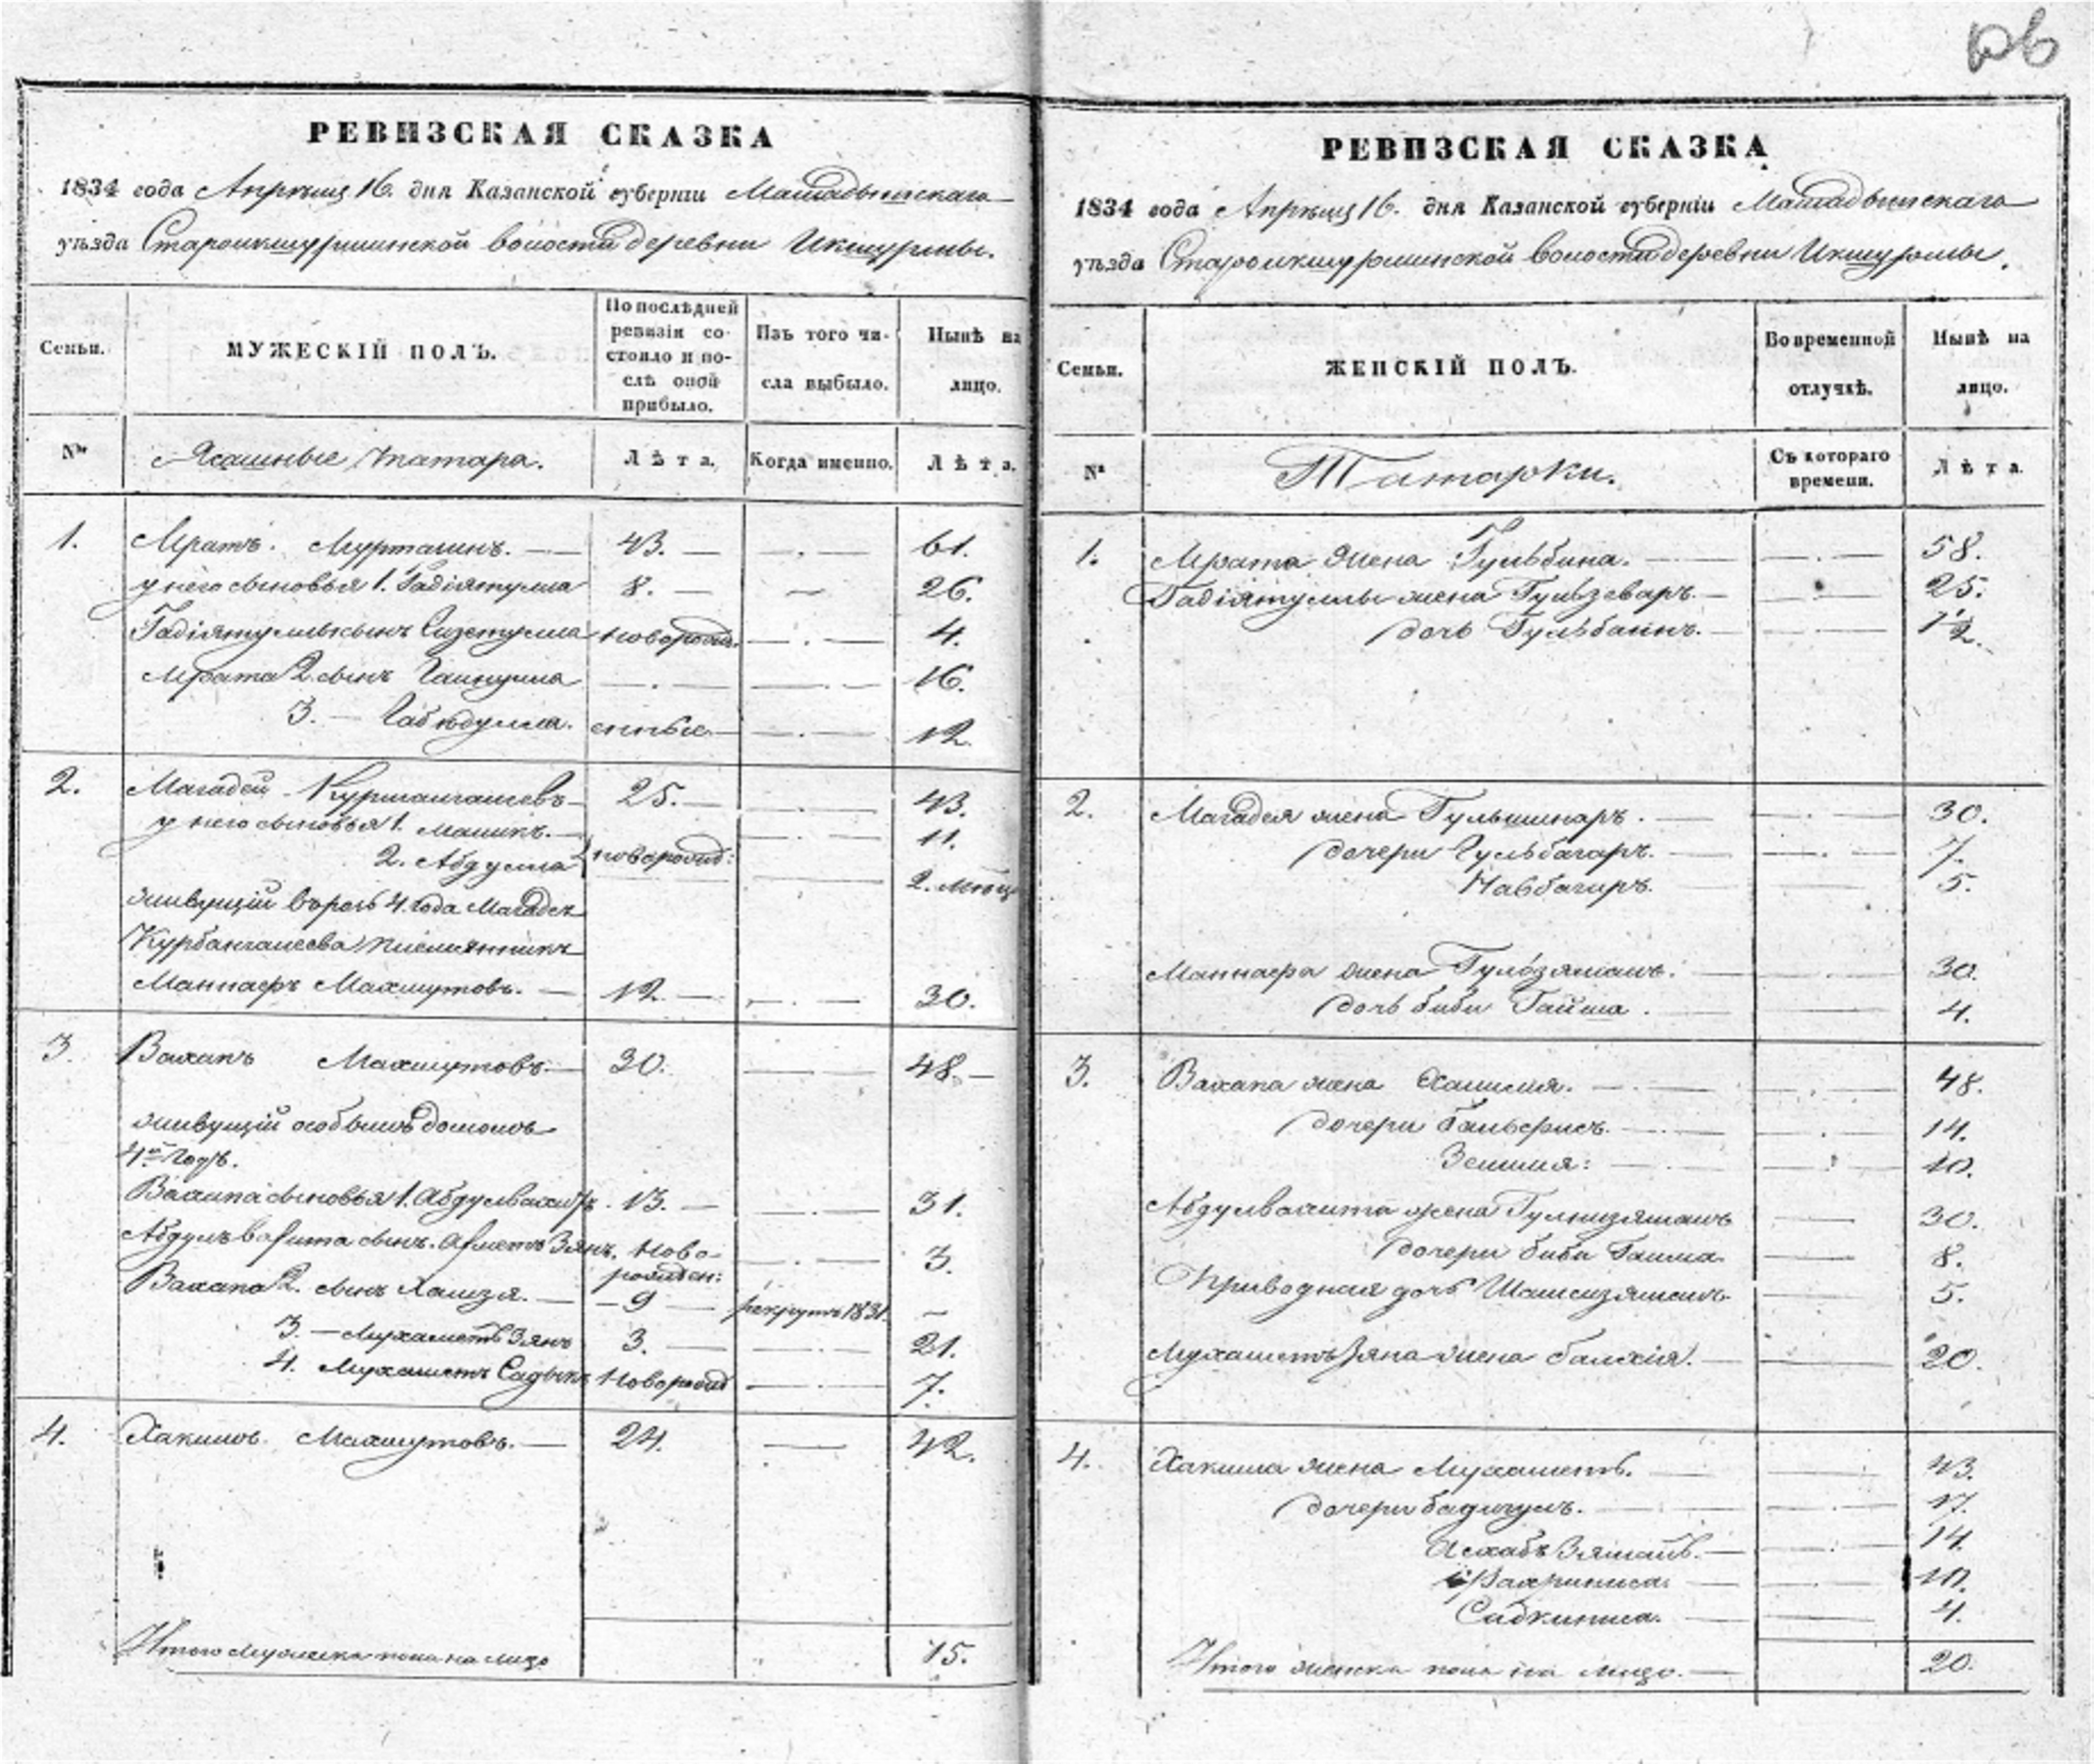 РЕВИЗСКАЯ СКАЗКА
1834 года Апрѣля 16. дня Казанской губерніи Мамадышскаго
уѣзда Староикшурминской волости деревни Икшурмы.
Семьи.
МУЖЕСКІЙ ПОЛЪ.
По послѣдней ревизіи состояло и послѣ оной прибыло.
Изъ того числа выбыло.
Нынѣ на лицо.
№
Ясашные татара.
Лѣта.
Когда именно.
Лѣта.
1. Мратъ Муртазинъ. 43. 61.
у него сыновья 1. Гадіятулла 8. 26.
Гадіятуллы сынъ новорожд. 4.
Мрата 2. сынъ 16.
3. енные 12.
2. Магадей Курмангалеевъ 25. 43.
у него сыновья 1. Маликъ. 11.
2. Абдулла новорожд: 2. мѣсяц
живущій врозь 4. года Магадея
Курбангалеева племянникъ
Маннафъ Махмутовъ. 12. 30.
3. Вахапъ Махмутовъ. 30. 48.
живущій особымъ домомъ
4й годъ.
Вахапа сыновья 1. Абдулвахитъ 13. 31.
Абдулъвахита сынъ Ахметъ Зянъ. Ново-
рожден: 3.
Вахапа 2. сынъ Хамзя. 9 рекрутъ 1831.
3. Мухаметъ Зянъ 3. 21.
4. Мухаметъ Садыкъ новорожд 7.
4. Хакимъ Махмутовъ. 24. 42.
Итого мужеска пола на лицо 15.
РЕВИЗСКАЯ СКАЗКА
1834 года Апрѣля 16. дня Казанской губерніи Мамадышскаго
уѣзда Староикшурминской волости деревни Икшурмы.
Семьи.
ЖЕНСКІЙ ПОЛЪ.
Во временной отлучкѣ.
Нынѣ на лицо.
№
Татарки.
Съ котораго времени.
Лѣта.
1. Мрата жена Гульбина. 58.
Гадіятуллы жена Гульзеваръ. 25.
дочь Гульбаннъ. 1/2.
2. Магадея жена Гульшинаръ. 30.
дочери Гульбагаръ. 7.
Навбагиръ. 5.
Маннафа жена Гульзямалъ. 30.
дочь биби Гайша. 4.
3. Вахапа жена Халимя. 48.
дочери 14.
Зелимя: 10.
Абдулвахита жена Гульнизямалъ 30.
дочери биби Гаиша 8.
Приводная дочь Шамсизямалъ 5.
Мухаметъ Зяна жена 20.
4. Хакима жена 43.
дочери Бадигулъ. 17.
Асхабъ Зямалъ. 14.
Фахриниса. 10.
Садкиниса. 4.
Итого женска пола на лицо. 20.